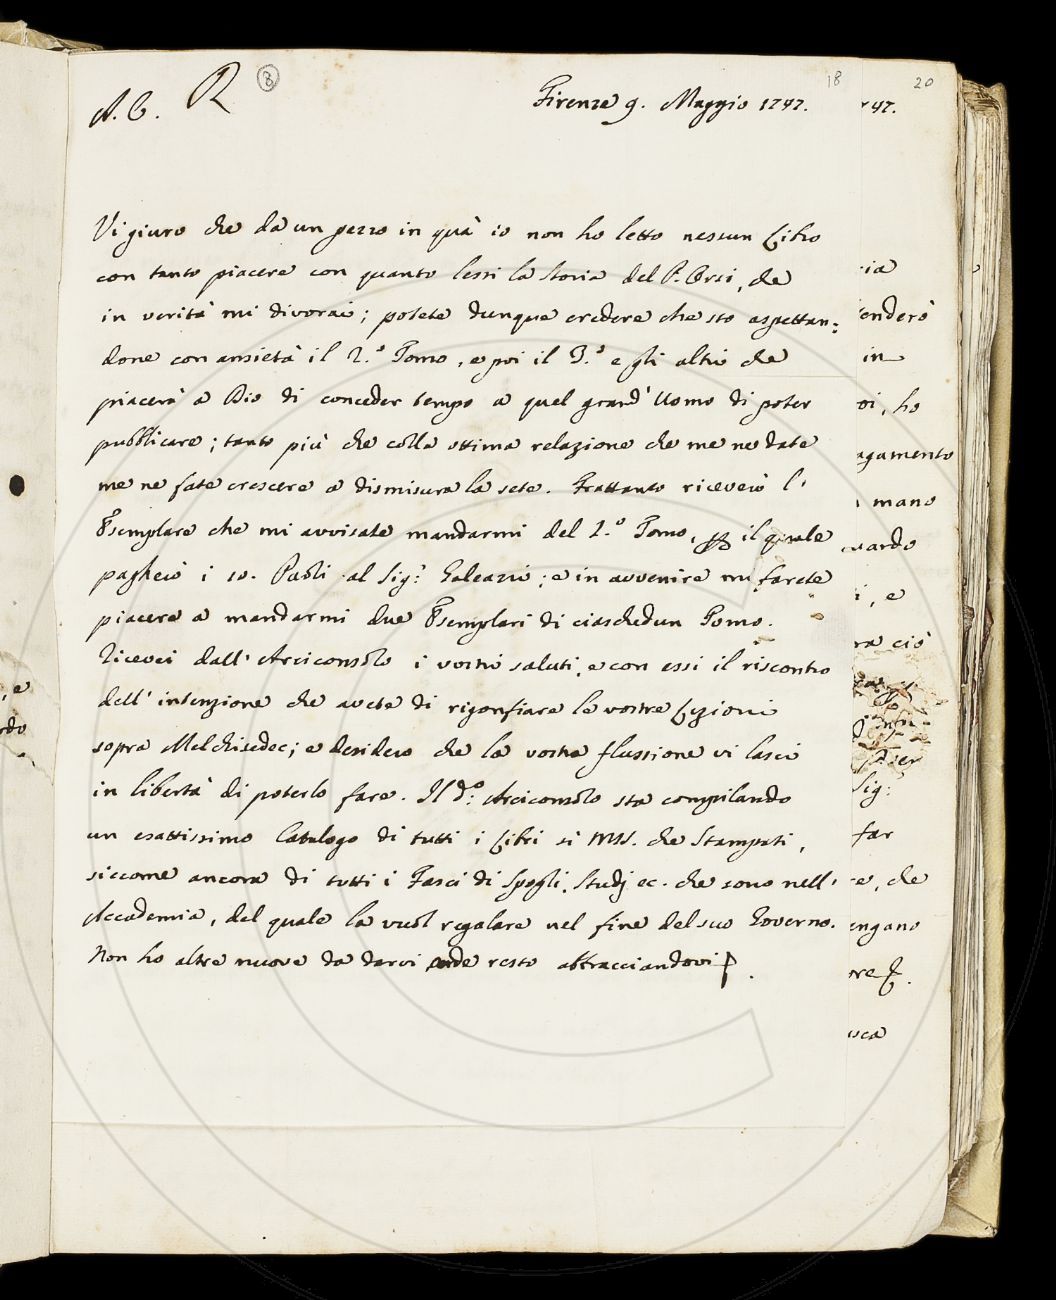 A. C. R 8 Firenze 9. Maggio 1747. 18 20
Vi giuro che da un pezzo in quà io non ho letto nessun Libro
con tanto piacere con quanto lessi la storia del P. Orsi, che
in verità mi divorai; potete dunque credere che sto aspettan:
done con ansietà il 2.º Tomo, e poi il 3.º e gli altri che
piacerà a Dio di conceder tempo a quel grand' Uomo di poter
pubblicare; tanto più che colla ottima relazione che me ne date
me ne fate crescere a dismisura la sete. Frattanto riceverò l'
Esemplare che mi avvisate mandarmi del 2.º Tomo, il quale
pagherò i 10. Paoli al Sig.r Galeazzi; e in avvenire mi farete
piacere a mandarmi due Esemplari di ciaschedun Tomo.
Ricevei dall' Arciconsolo i vostri saluti, e con essi il riscontro
dell' intenzione che avete di rigonfiare le vostre Lezioni
sopra Melchisedec; e desidero che la vostra flussione vi lasci
in libertà di poterlo fare. Il d.º Arciconsolo sta compilando
un esattissimo Catalogo di tutti i Libri sì MSS. che Stampati,
siccome ancora di tutti i Fasci di Spogli, Studj ec. che sono nell'
Accademia, del quale la vuol regalare nel fine del suo Governo.
Non ho altre nuove da darvi onde resto abbracciandovi
747.
enderò
in
oi, ho
agamento
mano
uardo
i, e
ra ciò
Sig:
far
re, che
engano
ore
usca
, e
rdo